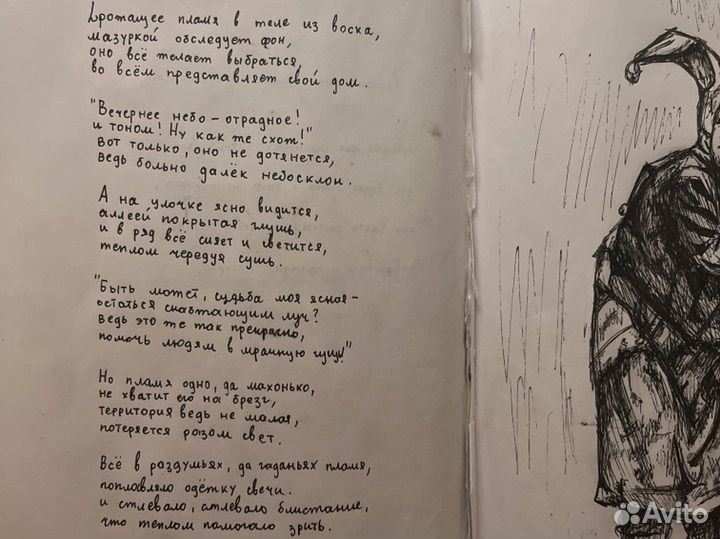 Дрожащее пламя в теле из воска,
мазуркой обследует фон,
оно всё желает выбраться,
во всём представляет свой дом.
"Вечернее небо – отрадное!
и тоном! Ну как же схож!"
вот только, оно не дотянется,
ведь больно далёк небосклон.
А на улочке ясно видится,
аллеей покрытая глушь,
и в ряд всё сияет и светится,
теплом чередуя сушь.
"Быть может, судьба моя ясноя –
остаться снабжающим луч?
ведь это же так прекрасно,
помочь людям в мрачную гущу!"
Но пламя одно, да махонько,
не хватит его на брезг,
территория ведь не малая,
потеряется разом свет.
Всё в раздумьях, да гаданьях пламя,
поплавляло одёжку свечи.
и стлевало, атлевало блистание,
что теплом помогало зрить.
Avito